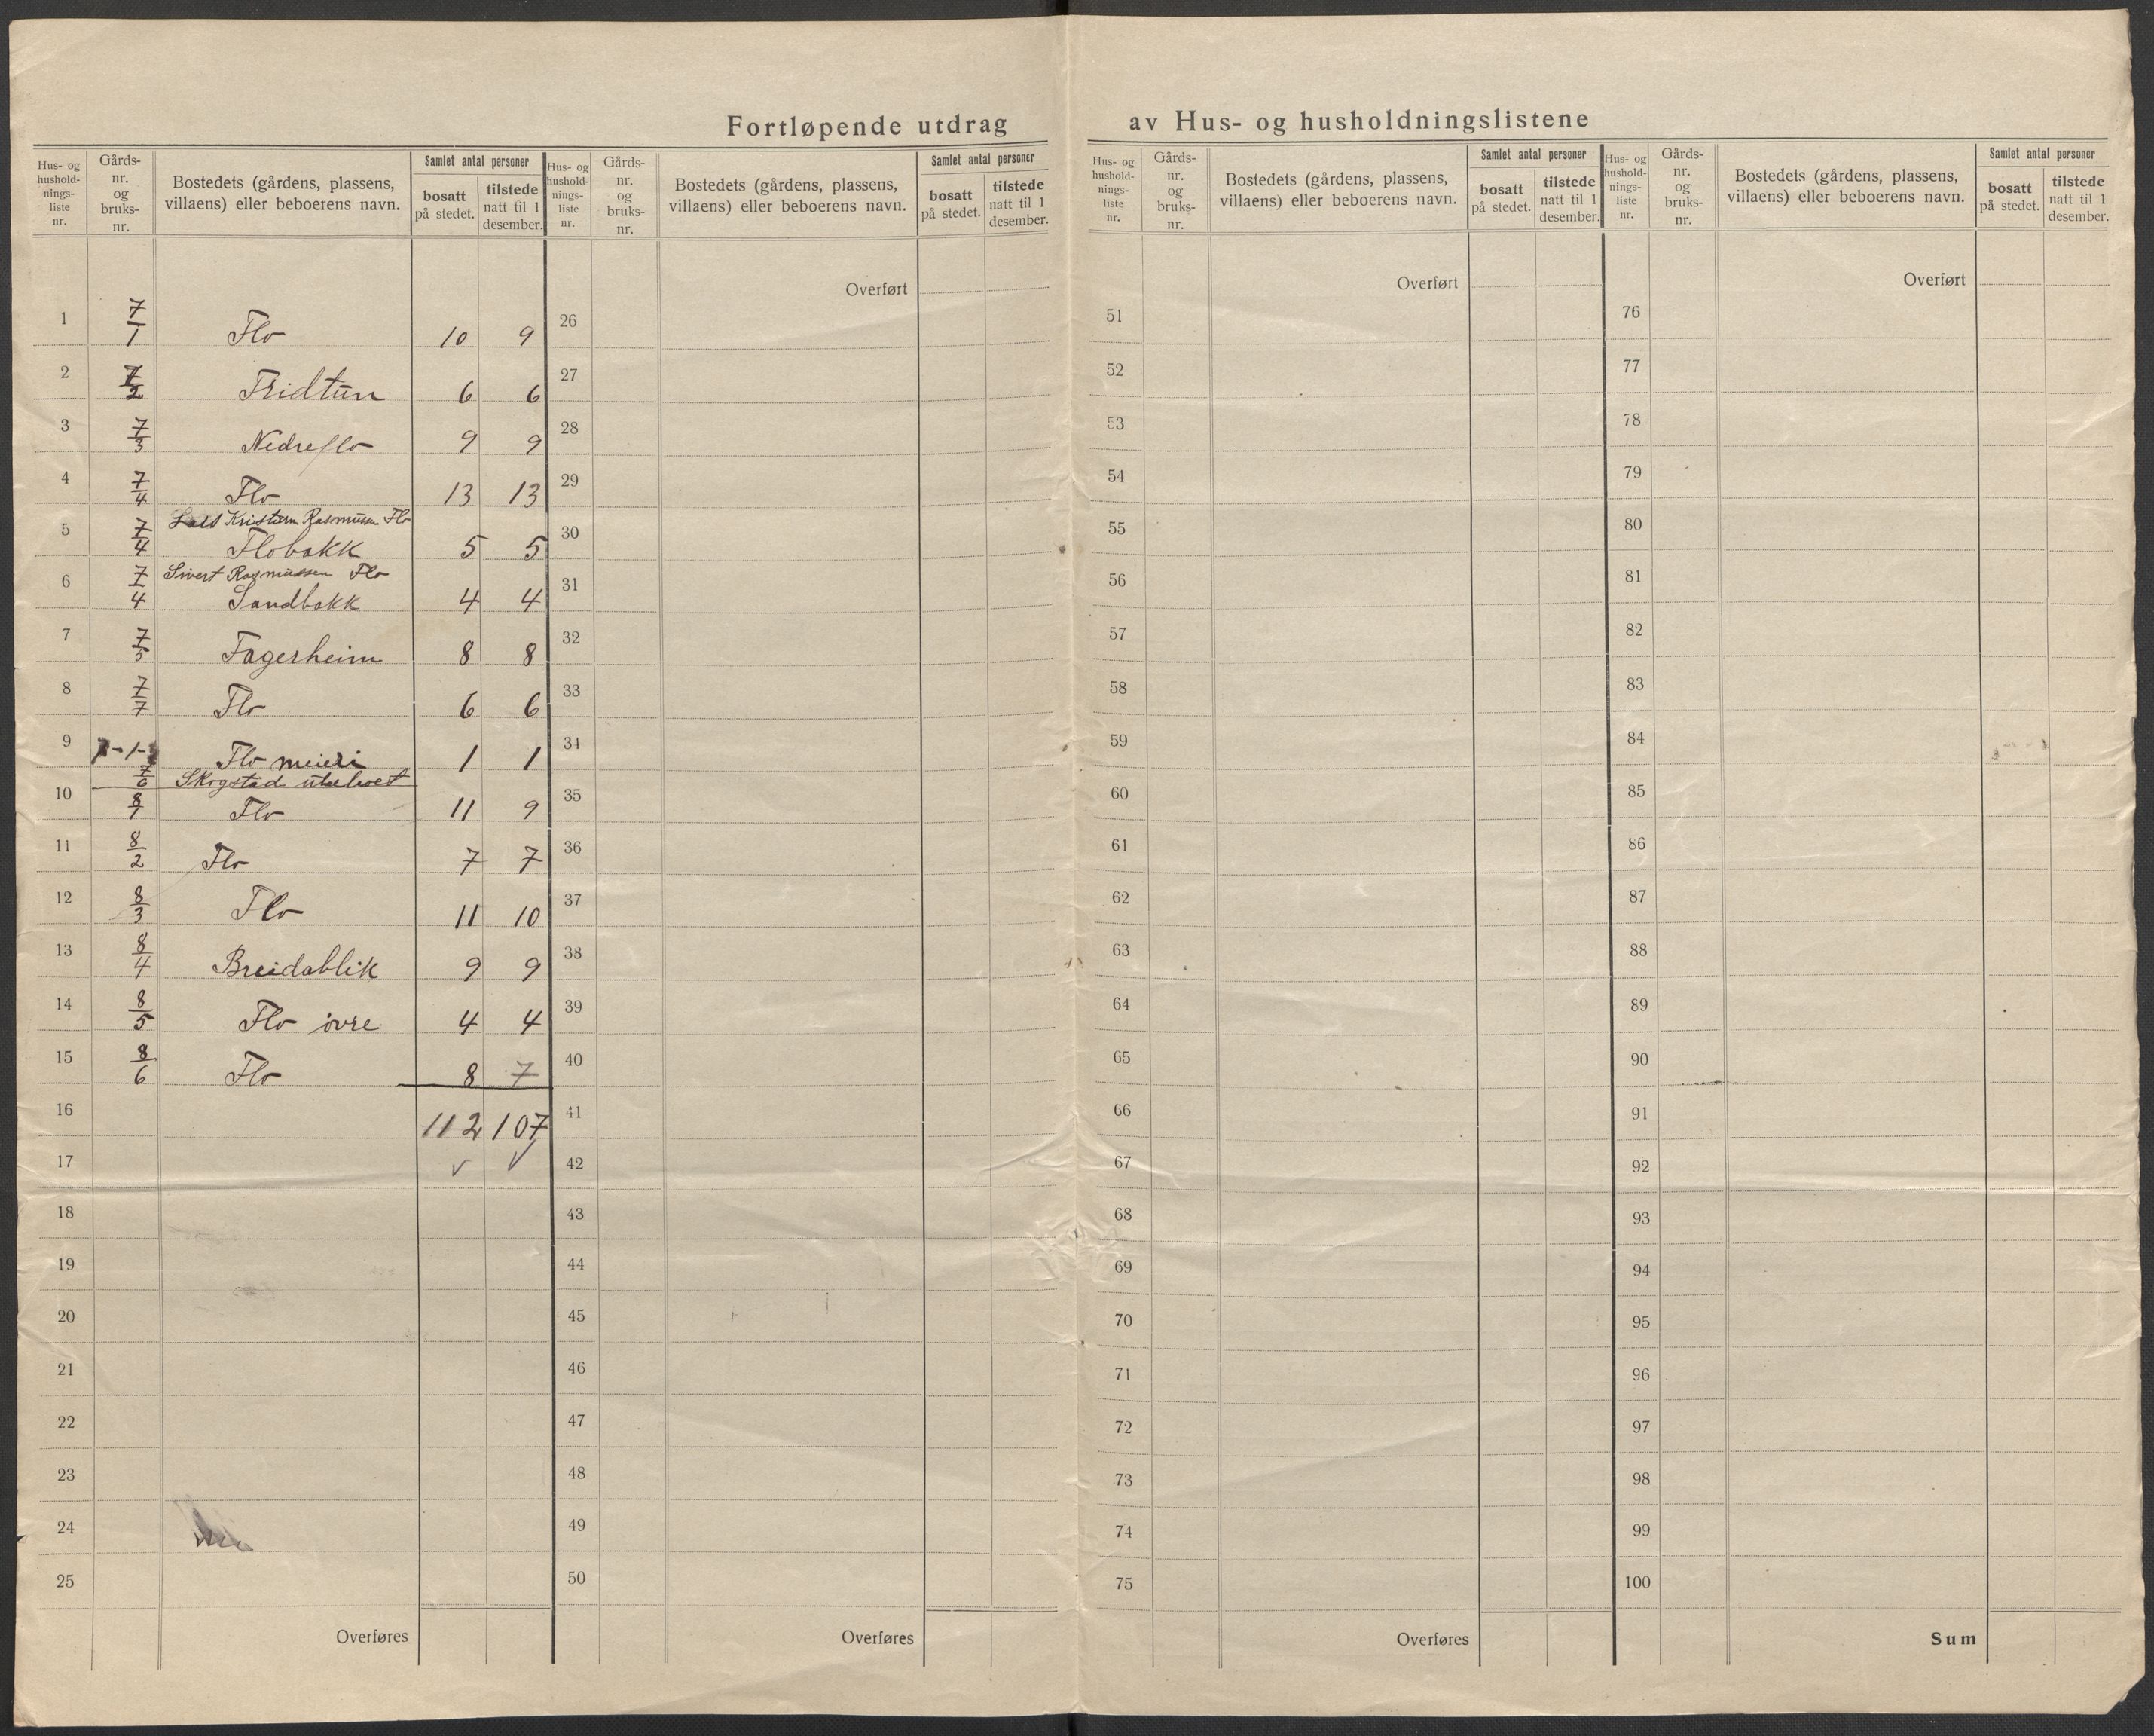 Fortløpende utdrag av Hus- og husholdningslistene
Hus- og hushold- nings- liste nr. Gårds- nr. og bruks- nr. Bostedets (gårdens, plassens, villaens) eller beboerens navn. Samlet antal personer bosatt på stedet. tilstede natt til 1 desember.
1 7/1 Flo 10 9
2 7/2 Fridtun 6 6
3 7/3 Nedreflo 9 9
4 7/4 Flo 13 13
Lars Kristian Rasmussen Flo
5 7/4 Flobakk 5 5
Sivert Rasmussen Flo
6 7/4 Sandbakk 4 4
7 7/5 Fagerheim 8 8
8 7/7 Flo 6 6
9 Flo meieri 1 1
7/6 Skogstad
10 8/1 Flo 11 9
11 8/2 Flo 7 7
12 8/3 Flo 11 10
13 8/4 Breidablik 9 9
14 8/5 Flo övre 4 4
15 8/6 Flo 8 7
16 112 107
17
18
19
20
21
22
23
24
25
Overføres
Hus- og hushold- nings- liste nr. Gårds- nr. og bruks- nr. Bostedets (gårdens, plassens, villaens) eller beboerens navn. Samlet antal personer bosatt på stedet. tilstede natt til 1 desember.
Overført
26
27
28
29
30
31
32
33
34
35
36
37
38
39
40
41
42
43
44
45
46
47
48
49
50
Overføres
Hus- og hushold- nings- liste nr. Gårds- nr. og bruks- nr. Bostedets (gårdens, plassens, villaens) eller beboerens navn. Samlet antal personer bosatt på stedet. tilstede natt til 1 desember.
Overført
51
52
53
54
55
56
57
58
59
60
61
62
63
64
65
66
67
68
69
70
71
72
73
74
75
Overføres
Hus- og hushold- nings- liste nr. Gårds- nr. og bruks- nr. Bostedets (gårdens, plassens, villaens) eller beboerens navn. Samlet antal personer bosatt på stedet. tilstede natt til 1 desember.
Overført
76
77
78
79
80
81
82
83
84
85
86
87
88
89
90
91
92
93
94
95
96
97
98
99
100
Sum